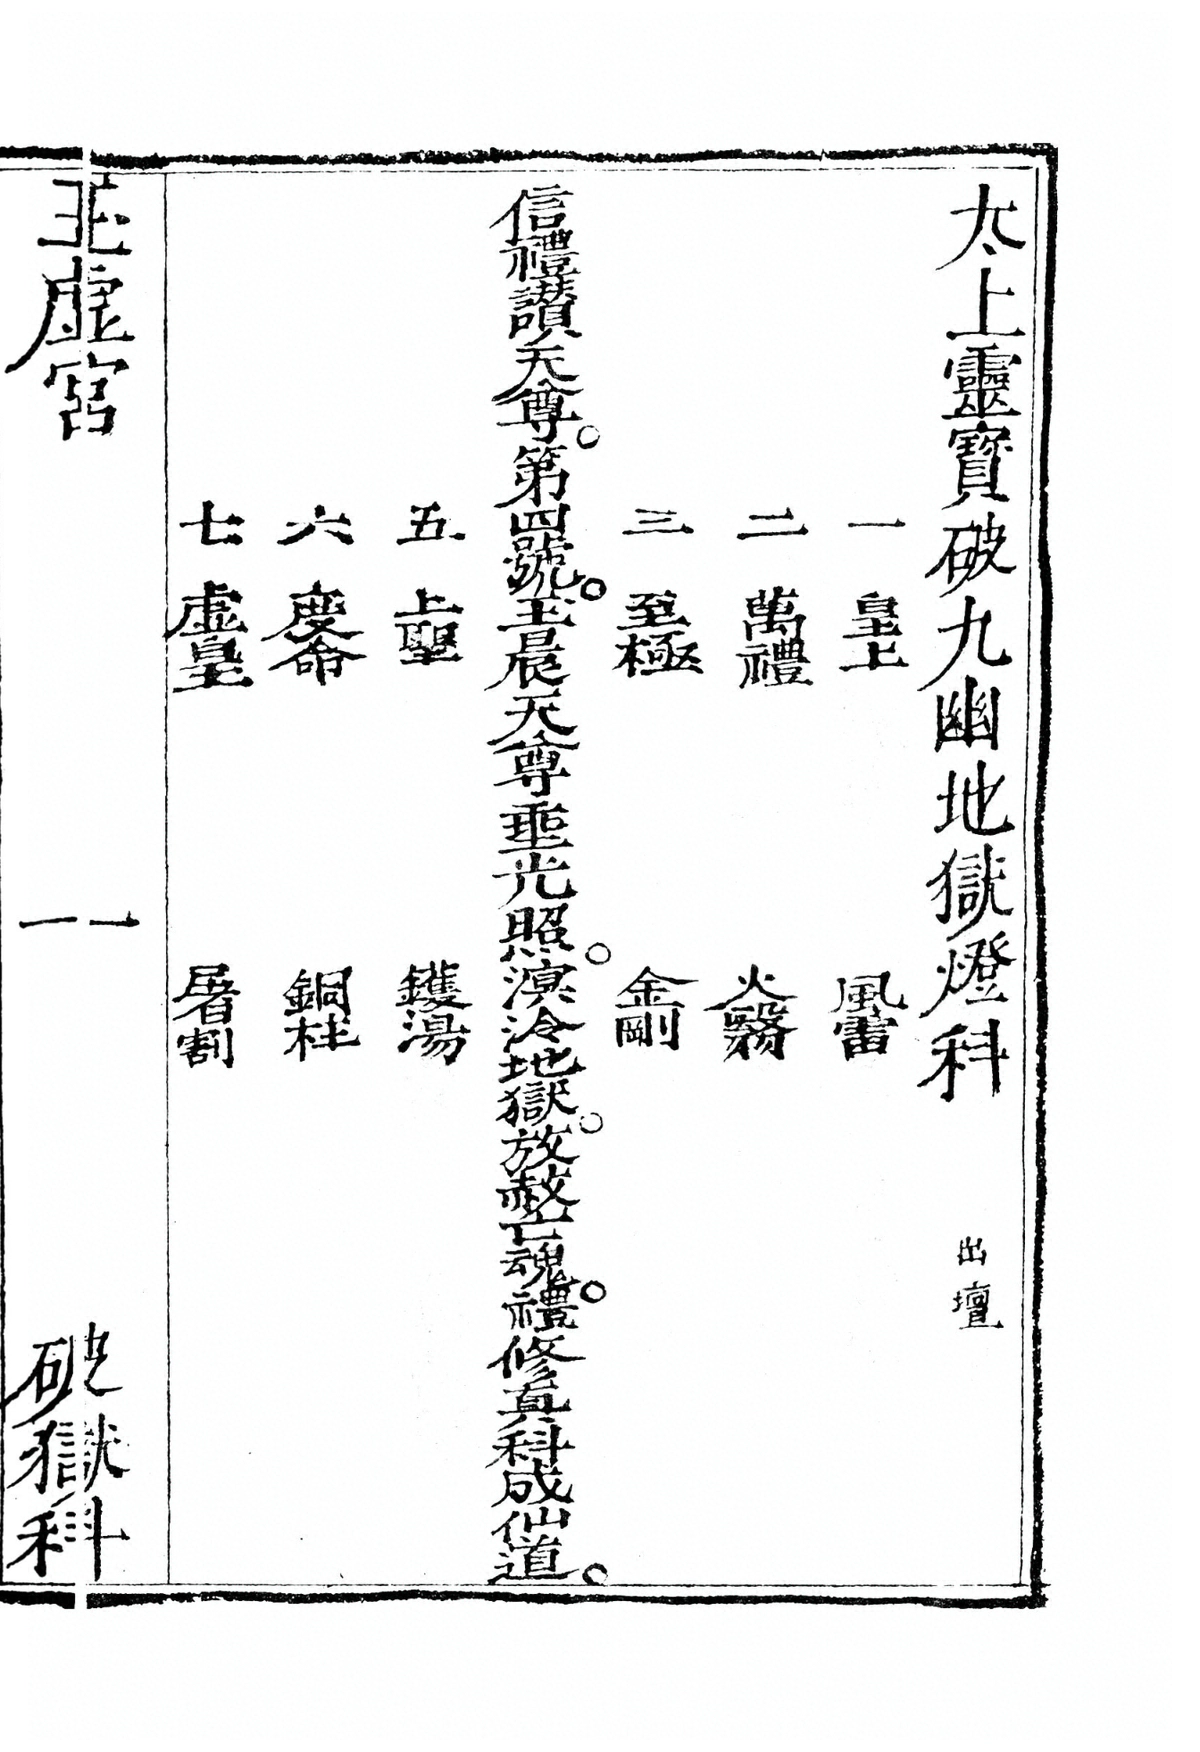 太上靈寶破九幽地獄燈科 出壇
一 皇上 風雷
二 萬禮 火翳
三 至極 金剛
信禮讃天尊。第四號。玉晨天尊垂光照。溟泠地獄。放赦亡魂。禮修真科成仙道。
五 上聖 鑊湯
六 慶命 銅柱
七 虛皇 屠割
玉虛宮 一 破獄科